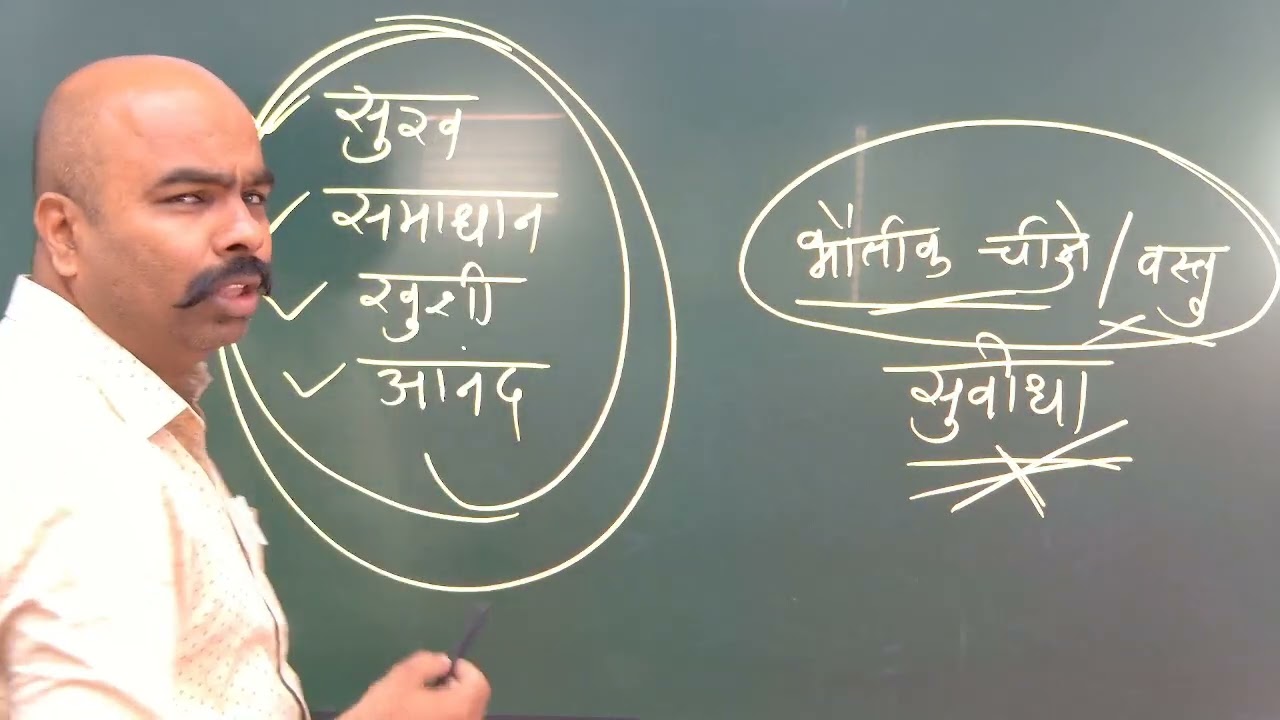 सुख
समाधान
खुशी
आनंद
भौतीक चीजे / वस्तु
सुवीधा